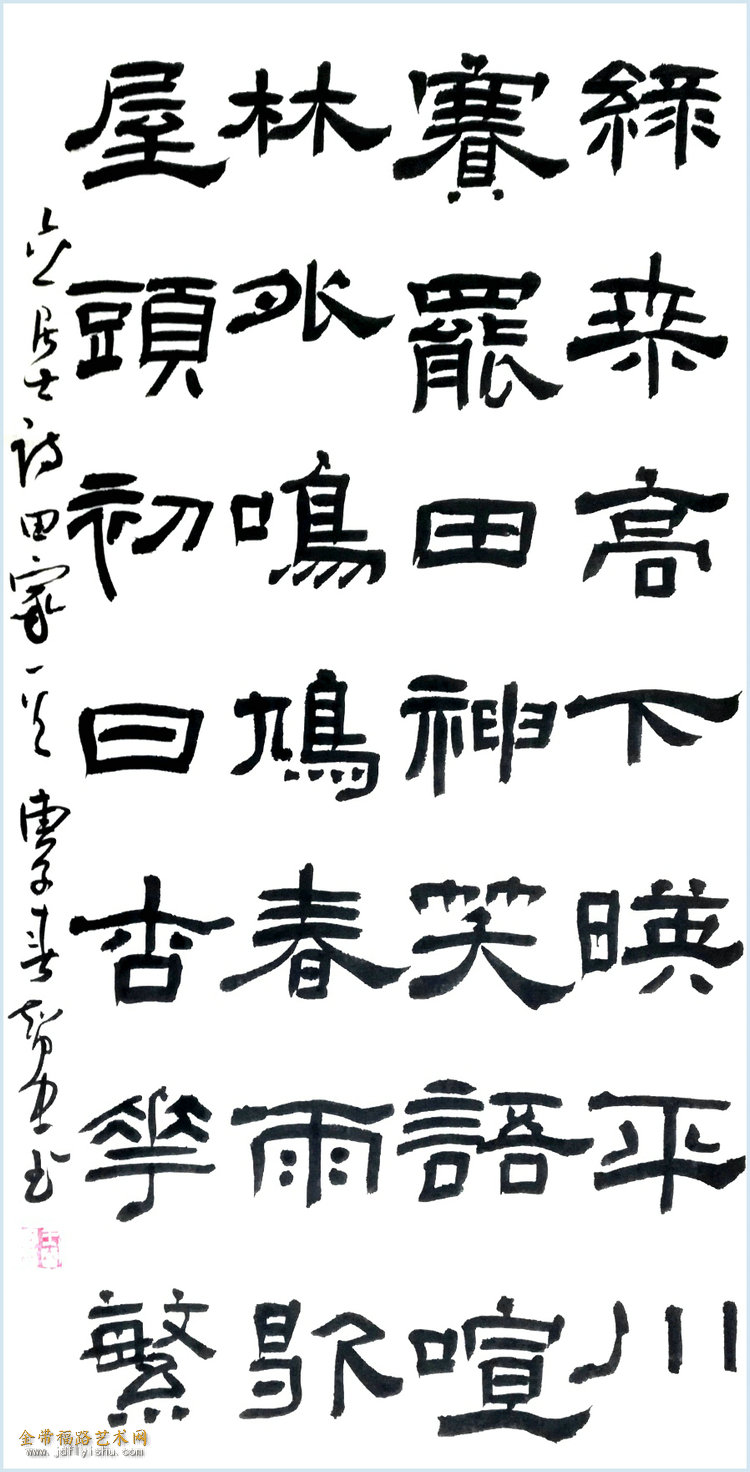 綠桒高下暎平川
賽罷田神笑語喧
林外鳴鳩春雨歇
屋頭初日杏華繁
六一居士詩田家一首 庚子春
金带福路艺术网
www.jdflyishu.com